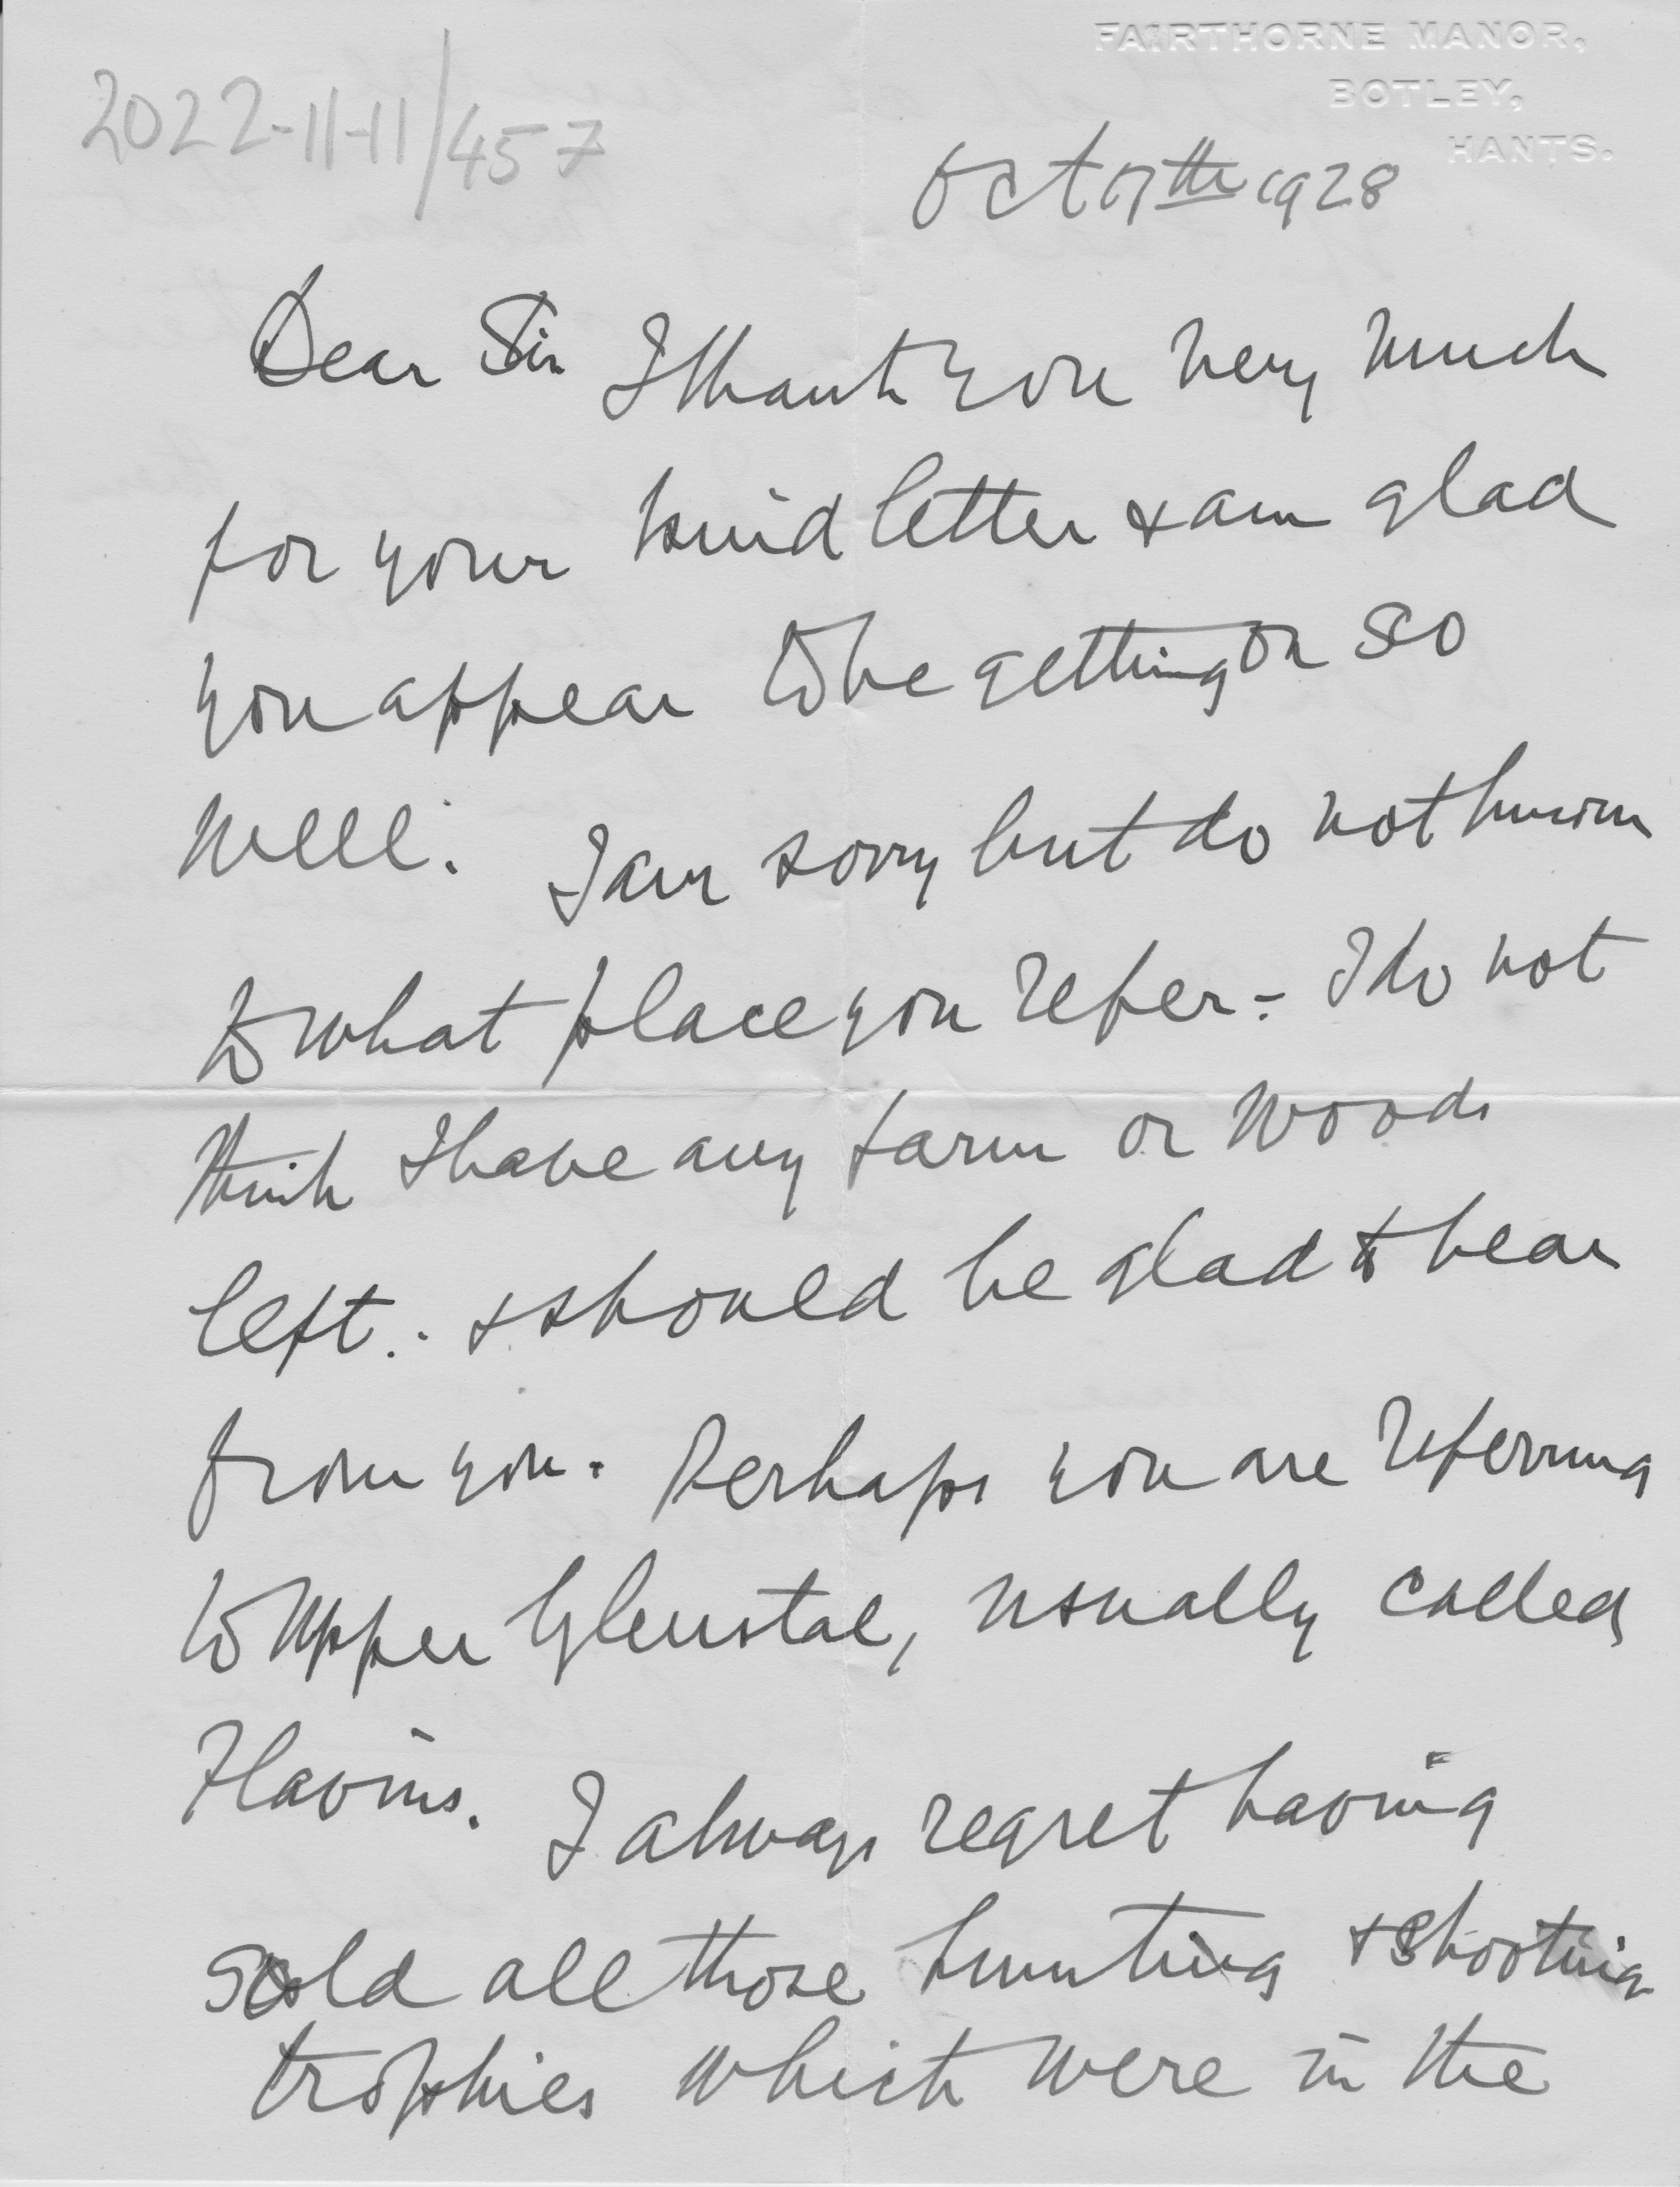 FAIRTHORNE MANOR,
BOTLEY,
HANTS.
2022-11-11/457
Oct 17th 1928
Dear Sir I thank you very much
for your kind letter & am glad
you appear to be getting on so
well. I am sorry but do not know
to what place you refer - I do not
think I have any farm or woods
left. & should be glad to hear
from you. Perhaps you are referring
to Upper Glenstal, usually called
Flavins. I always regret having
sold all those hunting & shooting
trophies which were in the